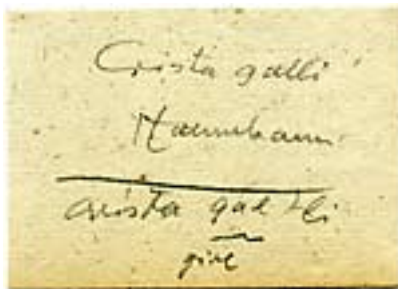 Crista galli
Hannekam
crista galli